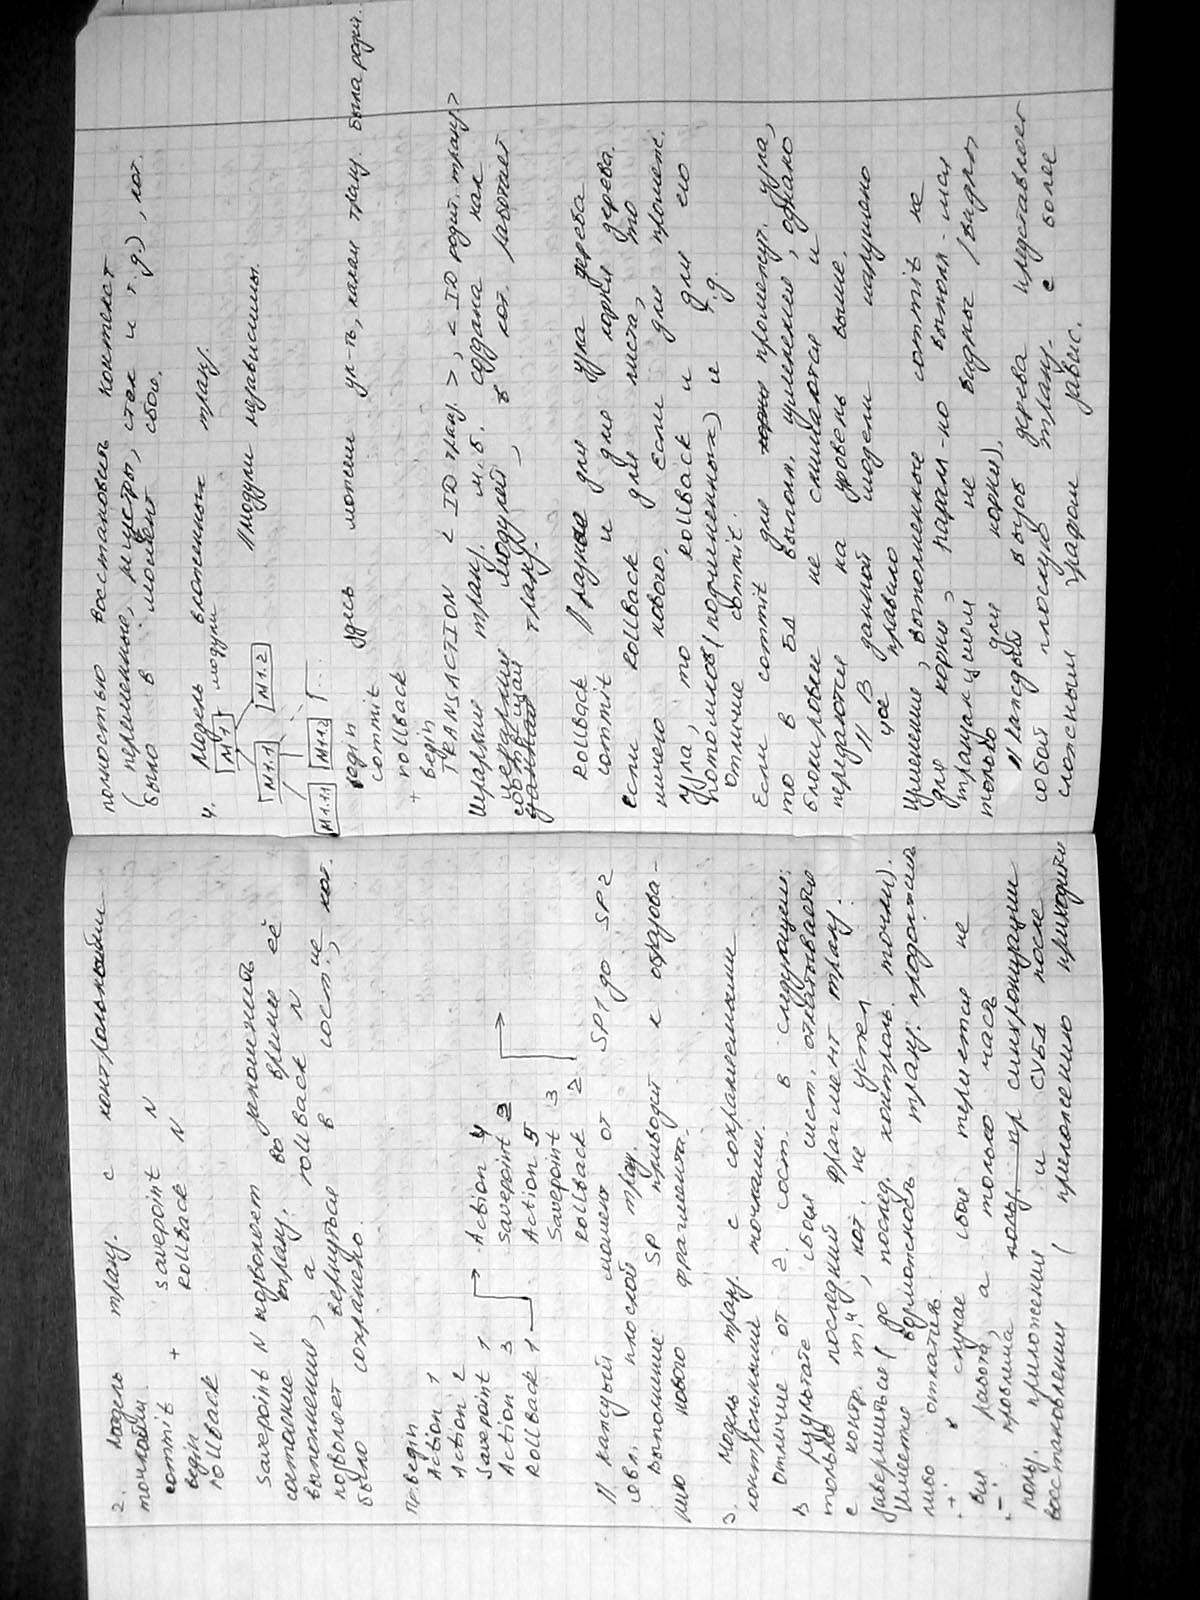 2. Модель транз. с контрольными
точками
commit + savepoint N
begin Rollback N
rollback
Savepoint N позволяет запомнить
состояние транз. во время её
выполнения, а rollback N
позволяет вернуться в сост-ие, кот.
было сохранено.
Пр. begin
Action 1
Action 2
Savepoint 1
Action 3
Rollback 1
Action 4
Savepoint 2
Action 5
Savepoint 3
Rollback 2
// каждый момент от SP1 до SP2
явл. плоской транз.
Выполнение SP приводит к образова-
нию нового фрагмента.
3. Модель транз. с сохраняемыми
контрольными точками.
Отличие от 2. сост. в следующем:
в результате сбоя сист. откатывается
только последний фрагмент транз.
с контр. т., кот. не успел
завершиться (до послед. контрол. точки).
Имеется возможность транз. продолжить
либо откатить.
"+" в случае сбоя теряется не
вся работа, а только часть
"-": проблема синхронизации
польз. приложения и СУБД после
восстановления ( приложению приходится
полностью восстановить контекст
(переменные, регистры, стек и т.д.), кот.
было в момент сбоя.
4. Модель вложенных транз.
М1 модули
// модули независимы.
М1.1 М1.2
М1.11 М1.12
begin здесь можем ук-ть, какая транз. была родит.
commit
rollback
+ begin
TRANSACTION < ID транз. >, < ID родит. транз. >
Иерархия транз. м.б. создана как
иерархия модулей, в кот. работает
транз.
Rollback // разное для узла дерева
commit и для корня дерева.
Если Rollback для листа, то
ничего нового. Если для промежт.
узла, то Rollback и для его
потомков (подчиненных) и т.д.
Отличие commit.
Если commit для промежут. узла,
то в БД выполн. изменения, однако
блокировки не снимаются и
передаются на уровень выше.
// В данной модели нарушено
правило
Изменения, выполненные commit не
для корня, паралл-но выполн-мся
транзакциям не видны (видны
только для корня).
// каждый вызов дерева представляет
собой плоскую транз. с более
сложным графом завис.